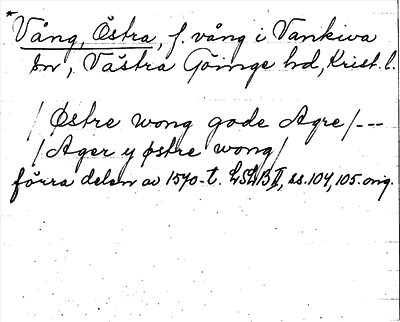 * Vång, Östra, f. vång i Vankiva
sn, Västra Göinge hd, Krist. l.
/ Østre wong gode Agre /---
/ Ager y østre wong /
förra delen av 1570-t. LSLB II, ss. 104, 105. orig.